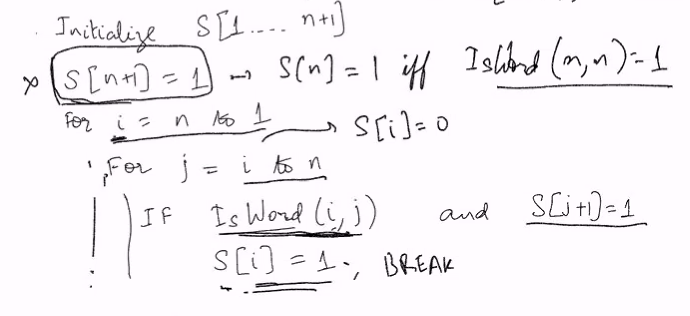 Initialize S[1.... n+1]
S[n+1] = 1 → S[n] = 1 iff IsWord (n,n)=1
For i = n to 1 → S[i]=0
For j = i to n
IF IsWord (i,j) and S[j+1]=1
S[i] = 1., BREAK